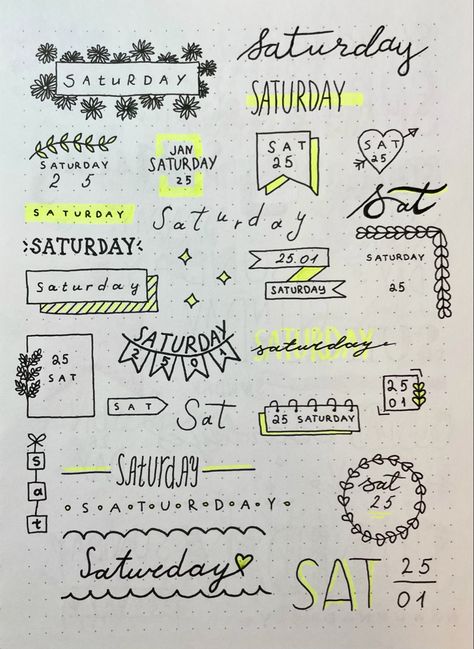 SATURDAY
Saturday
SATURDAY
SATURDAY
2 5
JAN
SATURDAY
25
SAT
25
SAT
25
Sat
SATURDAY
Saturday
SATURDAY
25.01
SATURDAY
SATURDAY
25
Saturday
SATURDAY
2501
SATURDAY
saturday
25
SAT
25
01
SAT
Sat
25 SATURDAY
sat
Saturday
SATURDAY
sat
25
Saturday
SAT 25
01